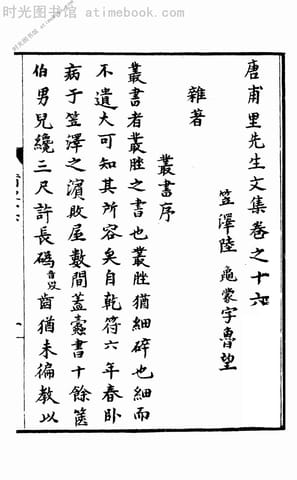 时光图书馆 atimebook.com
唐甫里先生文集卷之十六
笠澤陸 龜蒙字魯望
雜著
叢書序
叢書者叢脞之書也叢脞猶細碎也細而
不遺大可知其所容矣自乾符六年春卧
病于笠澤之濱敗屋數間蓋蠹書十餘篋
伯男兒纔三尺許長碼齒猶未徧教以
时光图书馆 atimebook.com